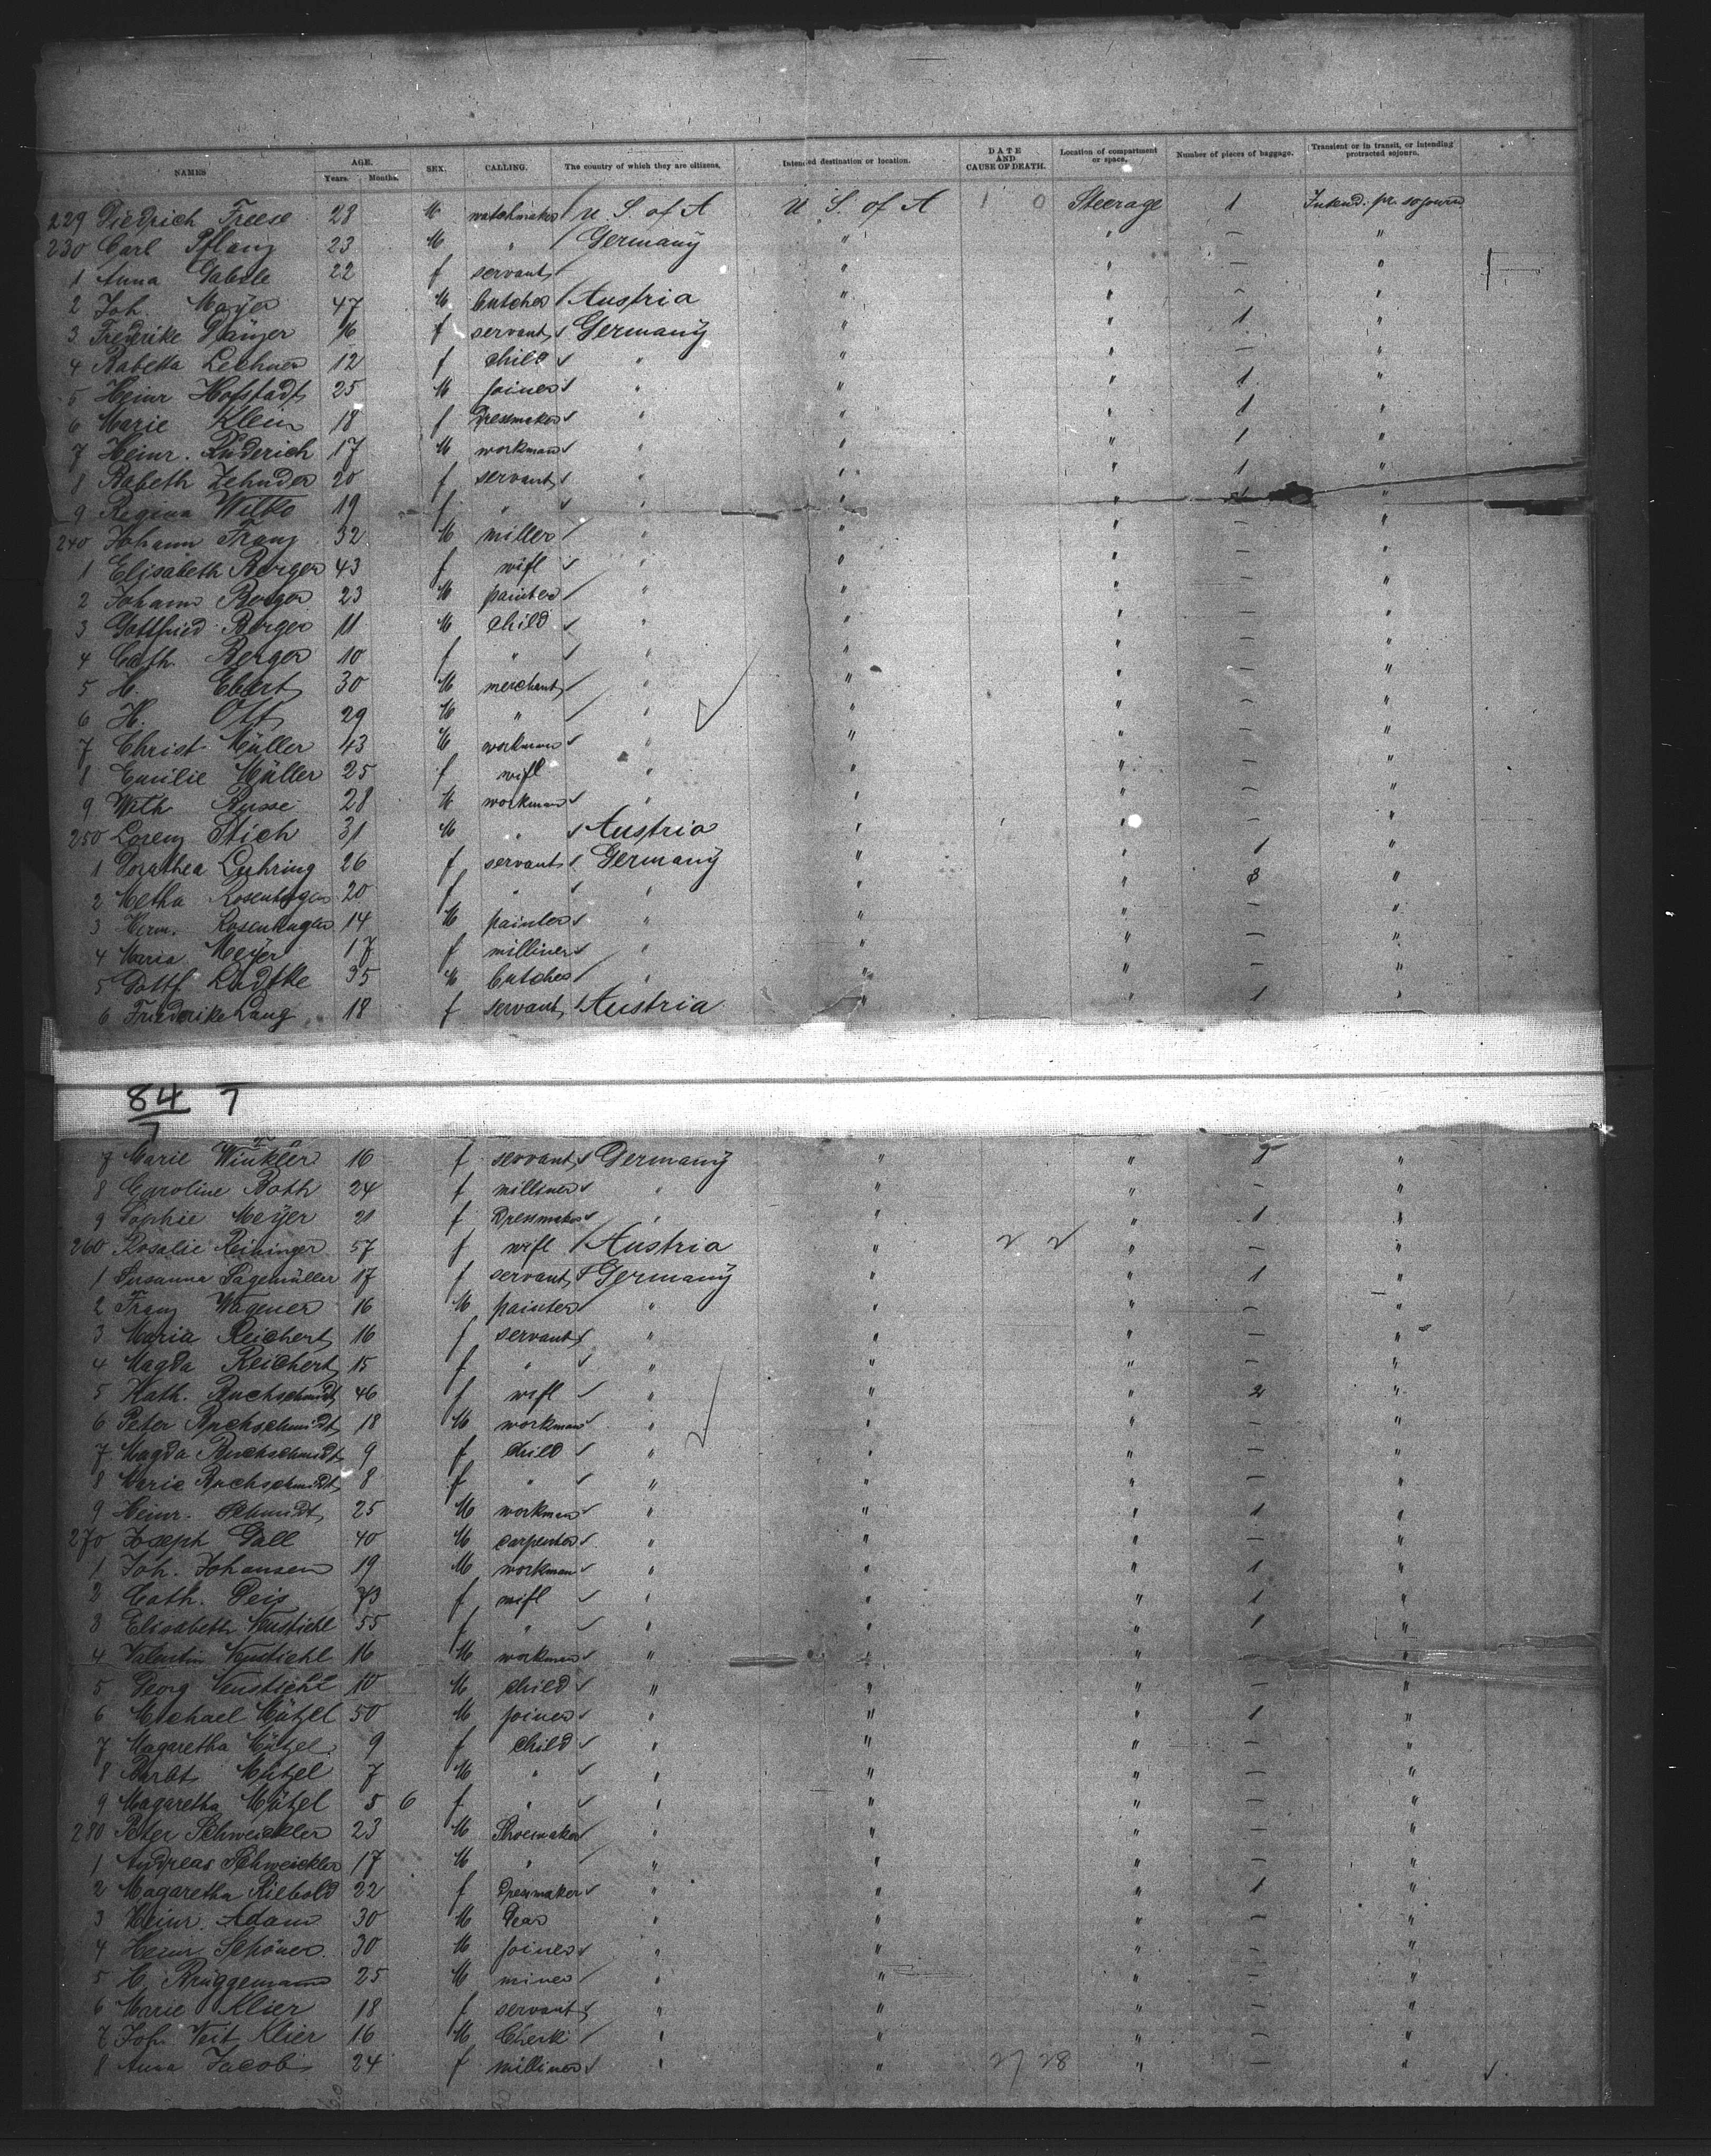 NAMES AGE. Years. Months. SEX. CALLING. The country of which they are citizens. Intended destination or location. DATE AND CAUSE OF DEATH. Location of compartment or space. Number of pieces of baggage. Transient or in transit, or intending protracted sojourn.
229 Diedrich Freese 28 M watchmaker U. S. of A U. S. of A 1 0 Steerage 1 Intend. pr. sojourn
230 Carl Pflanz 23 M " Germany " " — "
1 Anna 22 f servant " " — "
2 Joh. Mayer 47 M butcher Austria " " — "
3 Frederike 16 f servant Germany " " 1 "
4 Babetta Lechner 12 f child " " " — "
5 Heinr Hofstadt 25 M joiner " " " 1 "
6 Marie Klein 18 f Dressmaker " " " 1 "
7 Heinr. Ruderich 17 M workman " " " 1 "
8 Babeth Zehnder 20 f servant " " " 1 "
9 Regina 19 f " " " " "
240 Johann Franz 32 M miller " " " — "
1 Elisabeth Berger 43 f wife " " " — "
2 Johann Berger 23 M painter " " " — "
3 Gottfried Berger 11 M child " " " — "
4 Cath. Berger 10 f " " " " — "
5 H. Ebert 30 M merchant " " " — "
6 H. Ott 29 M " " " " — "
7 Christ. Müller 43 M workman " " " — "
8 Emilie Müller 25 f wife " " " — "
9 Wilh Busse 28 M workman " " " — "
250 Lorenz Stich 31 M " Austria " " — "
1 Dorathea Luhring 26 f servant Germany " " 1 "
2 Metha Rosenhagen 20 f " " " " 3 "
3 Herm. Rosenhagen 14 M painter " " " — "
4 Maria Meyer 17 f milliner " " " — "
5 Gottf Ludtke 35 M butcher " " " — "
6 Friederike Lang 18 f servant Austria " " 1 "
84 7
7
7 Marie Winkler 16 f servant Germany " " "
8 Caroline Both 24 f milliner " " " — "
9 Sophie Meyer 21 f Dressmaker " " " 1 "
260 Rosalie Reininger 57 f wife Austria " " — "
1 Susanna Sagemüller 17 f servant Germany " " 1 "
2 Franz Wagener 16 M painter " " " — "
3 Maria Reichert 16 f servant " " " — "
4 Magda Reichert 15 f " " " " — "
5 Kath. Buchschmidt 46 f wife " " " 2 "
6 Peter Buchschmidt 18 M workman " " " — "
7 Magda Buchschmidt 9 f child " " " — "
8 Marie Buchschmidt 8 f " " " " — "
9 Heinr. Schmidt 25 M workman " " " 1 "
270 Joseph Gall 40 M carpenter " " " — "
1 Joh. Johansen 19 M workman " " " 1 "
2 Cath. Peis f wife " " " 1 "
3 Elisabeth Neustiehl 55 f " " " " 1 "
4 Valentin Neustiehl 16 M workman " " " — "
5 Georg Neustiehl 10 M child " " " — "
6 Michael Mützel 50 M joiner " " " 1 "
7 Magaretha Mützel 9 f child " " " — "
8 Mützel 7 M " " " " — "
9 Magaretha Mützel 5 6 f " " " " — "
280 Peter Schweickler 23 M Shoemaker " " " — "
1 Andreas Schweickler 17 M " " " " — "
2 Magaretha Riebold 22 f Dressmaker " " " 1 "
3 Heinr. Adam 30 M " " " — "
4 Herm. Schöner 30 M joiner " " " — "
5 H. Brüggemann 25 M miner " " " — "
6 Marie Klier 18 f servant " " " — "
7 Joh. Veit Klier 16 M Clerk " " " — "
8 Anna Jacobi 24 f milliner " " 27 28 " — "